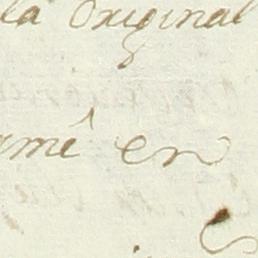 la Original
amé en